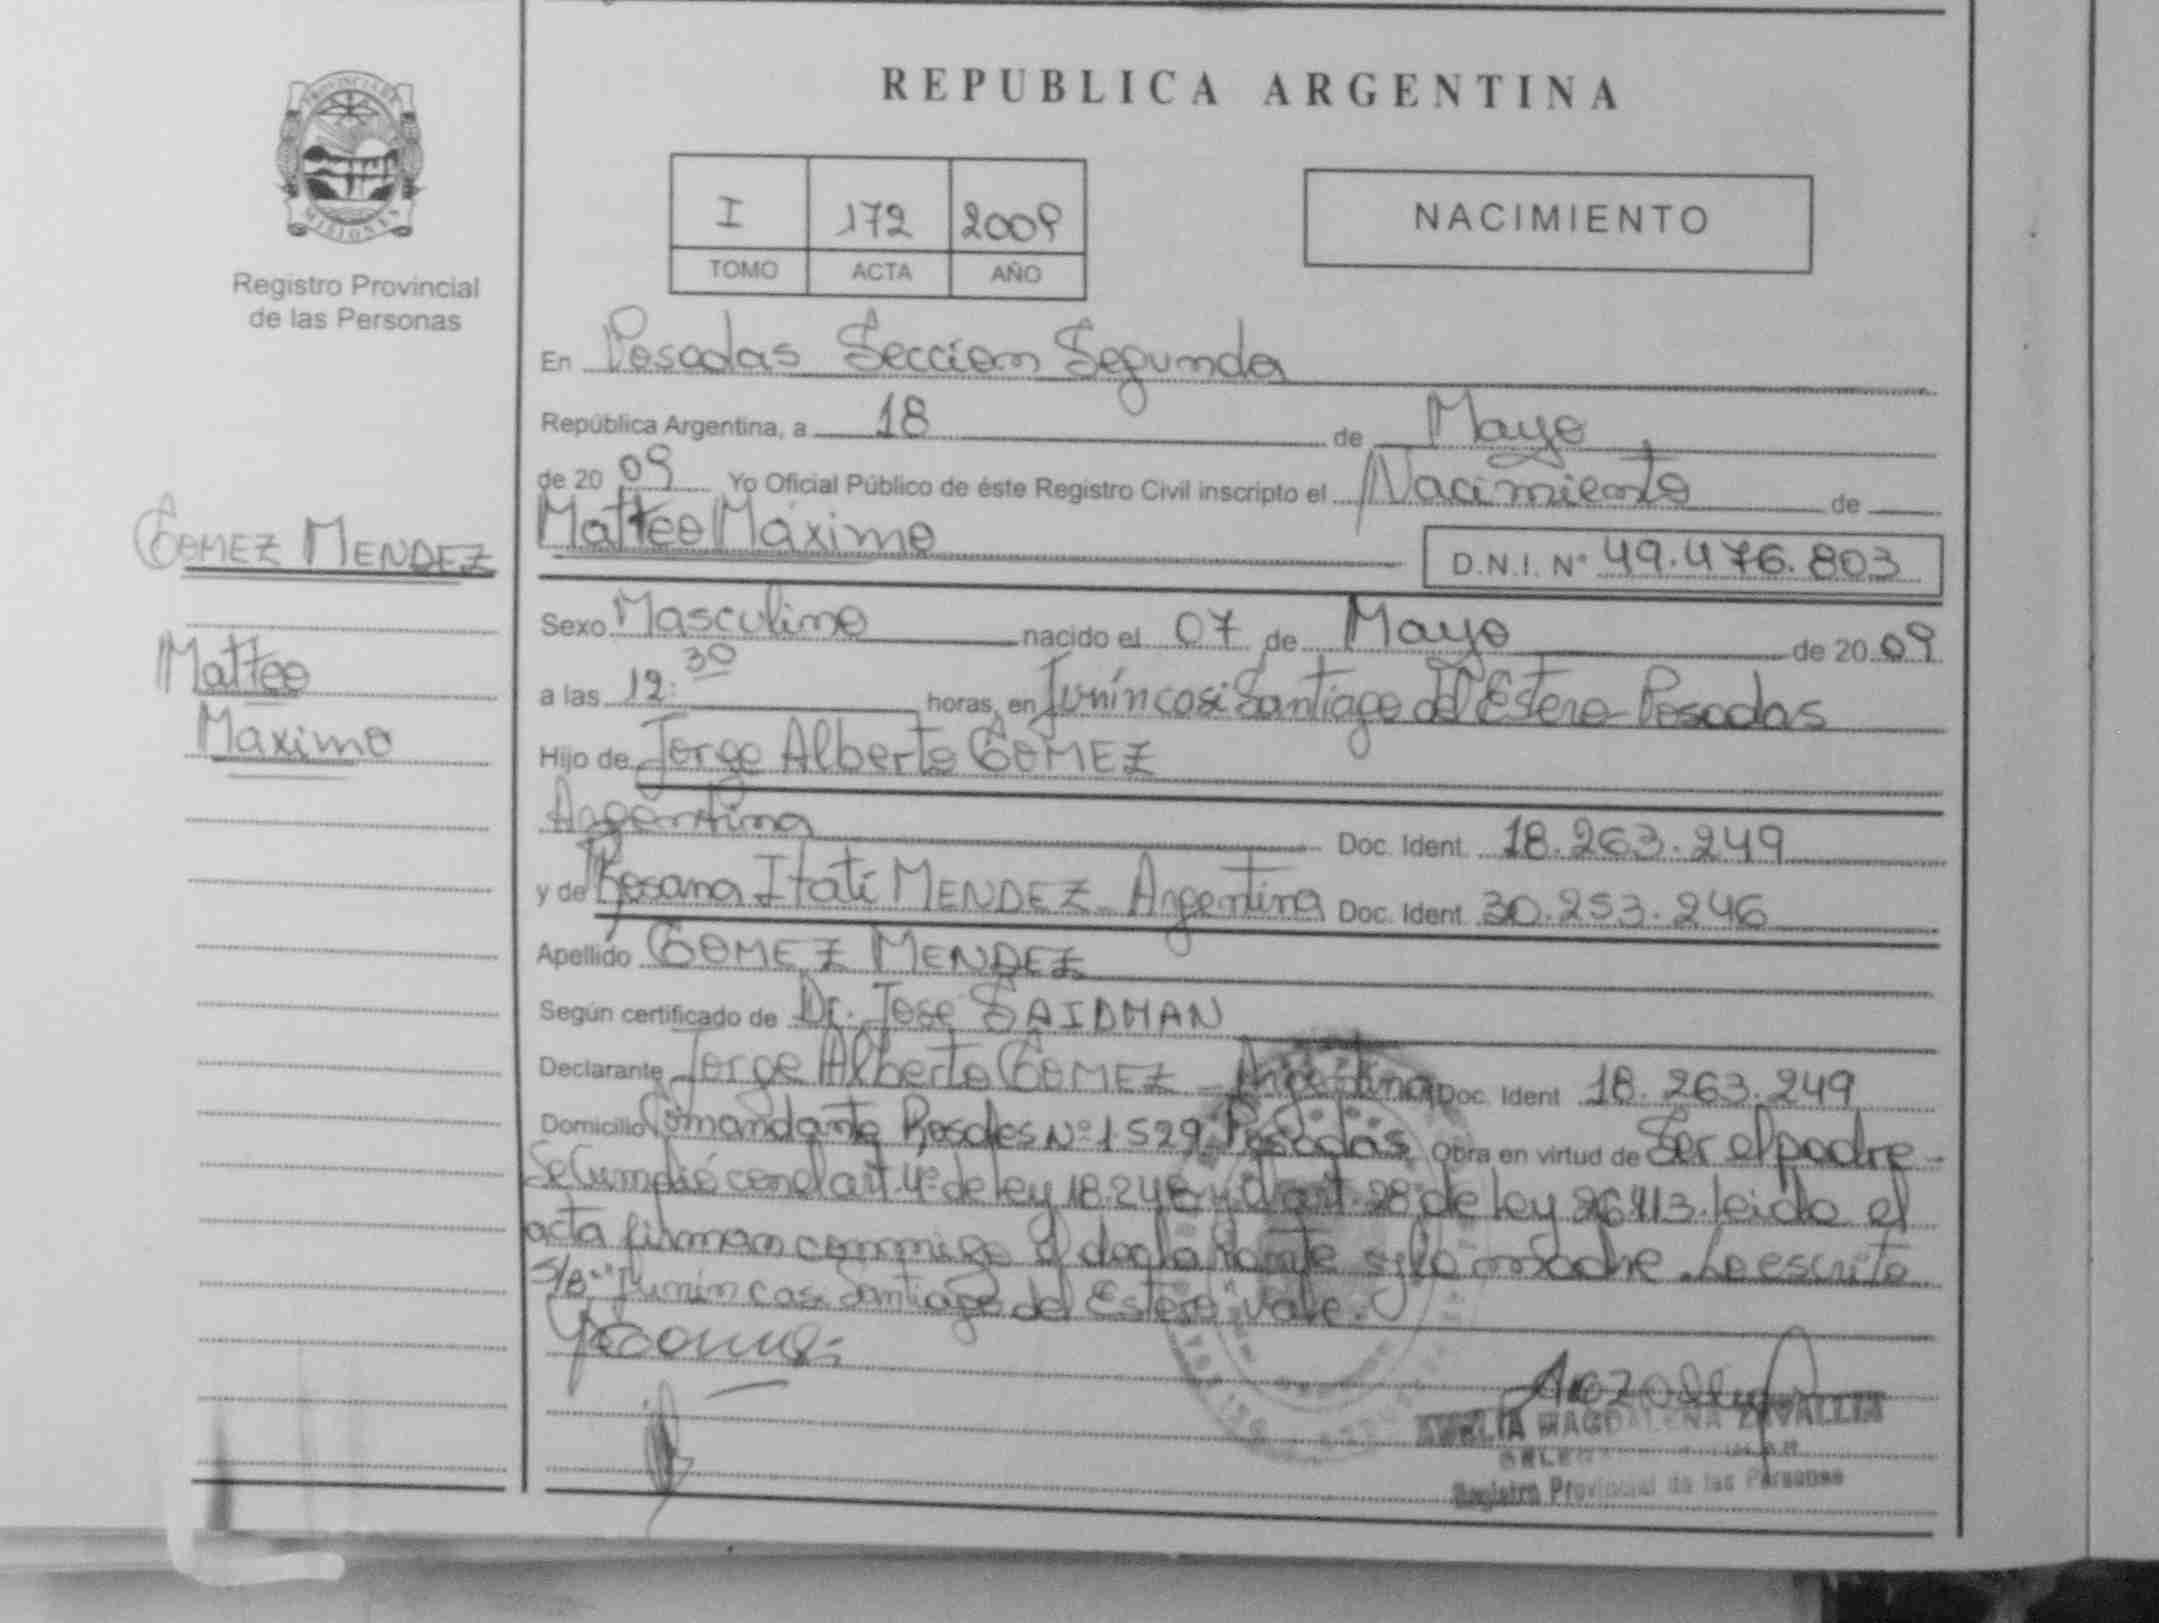 REPUBLICA ARGENTINA
PROVINCIA DE
MISIONES
Registro Provincial
de las Personas
I 172 2009
TOMO ACTA AÑO
NACIMIENTO
En Posadas Seccion Segunda
República Argentina, a 18 de Mayo
de 20 09 Yo Oficial Público de éste Registro Civil inscripto el Nacimiento de
GOMEZ MENDEZ
Matteo Máximo
D.N.I. N° 49.476.803
Matteo
Maximo
Sexo Masculino nacido el 07 de Mayo de 20 09
a las 12:30 horas, en Junín casi Santiago del Estero - Posadas
Hijo de Jorge Alberto GOMEZ
Argentina Doc. Ident. 18.263.249
y de Rosana Itatí MENDEZ - Argentina Doc. Ident. 30.253.246
Apellido GOMEZ MENDEZ
Según certificado de Dr. Jose SAIDMAN
Declarante Jorge Alberto GOMEZ - Argentina Doc. Ident 18.263.249
Domicilio Comandante Rosales Nº 1529 Posadas Obra en virtud de Ser el padre -
Se Cumplió con el art. 4º de ley 18.248 y el art. 28º de ley 26.413. leido el
acta firman conmigo el declarante y la madre. Lo escrito
S/B: "Junin casi Santiago del Estero" Vale.
MAGDALENA ZAVALLIA
Registro Provincial de las Personas